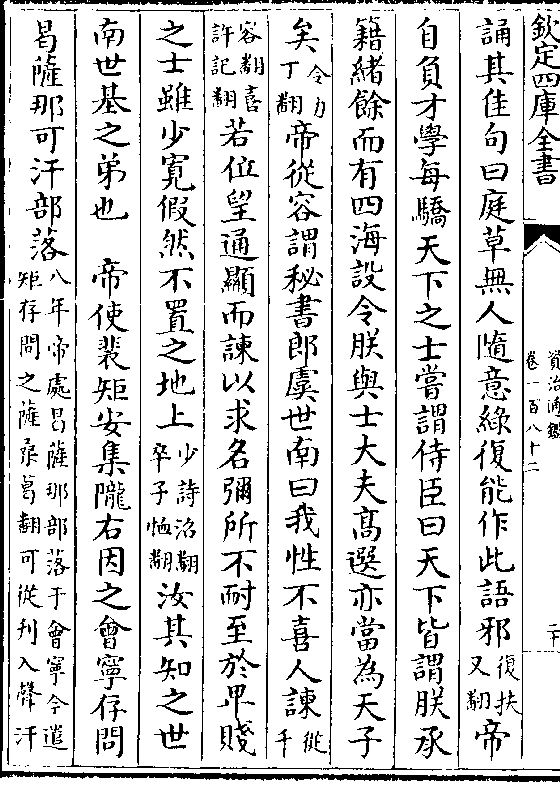 欽定四庫全書
資治通鑑
卷一百八十二
二十
誦其佳句曰庭草無人隨意綠復能作此語邪復扶又翻帝
自負才學每驕天下之士嘗謂侍臣曰天下皆謂朕承
籍緒餘而有四海設令朕與士大夫高選亦當為天子
矣令力丁翻帝從容謂秘書郎虞世南曰我性不喜人諫從千
容翻喜許記翻若位望通顯而諫以求名彌所不耐至於卑賤
之士雖少寛假然不置之地上少詩沼翻卒子恤翻汝其知之世
南世基之弟也　帝使裴矩安集隴右因之會寧存問
曷薩那可汗部落八年帝處曷薩那部落于會寧今遣矩存問之薩桑葛翻可從刋入聲汗